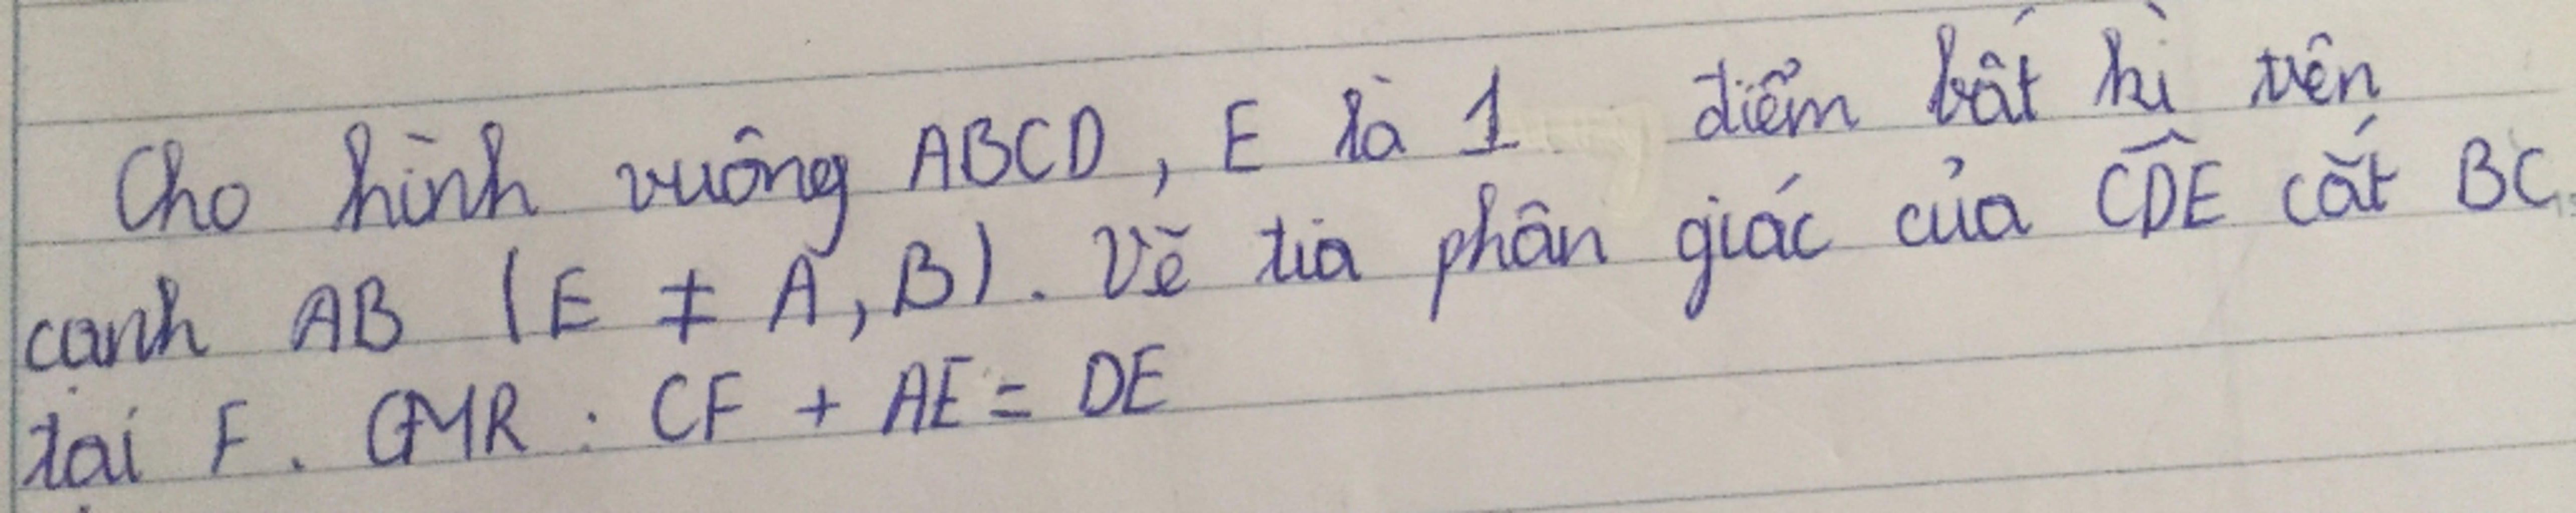 Cho hình vuông ABCD, E là 1 điểm bất kì trên
cạnh AB (E ≠ A, B). Vẽ tia phân giác của CDE cắt BC
tại F. CMR : CF + AE = DE